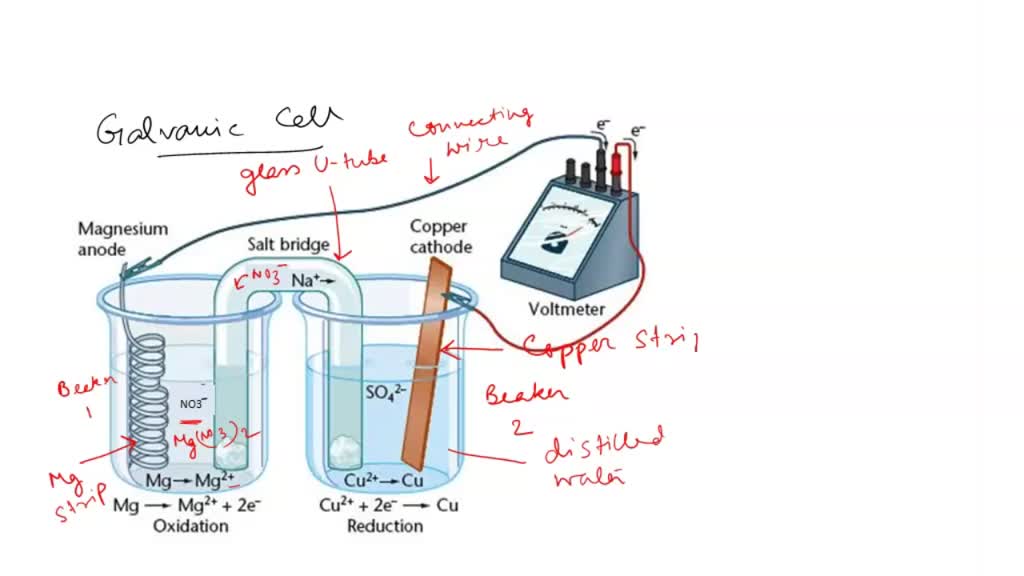 Galvanic Cell
connecting
wire
glass U-tube
e⁻
e⁻
Magnesium
anode
Salt bridge
Copper
cathode
NO3⁻
Na⁺→
Voltmeter
Copper Strip
Beaker
1
NO3⁻
Mg(NO3)2
SO₄²⁻
Beaker
2
distilled
water
Mg
strip
Mg→Mg²⁺
Cu²⁺→Cu
Mg → Mg²⁺ + 2e⁻
Cu²⁺ + 2e⁻ → Cu
Oxidation
Reduction